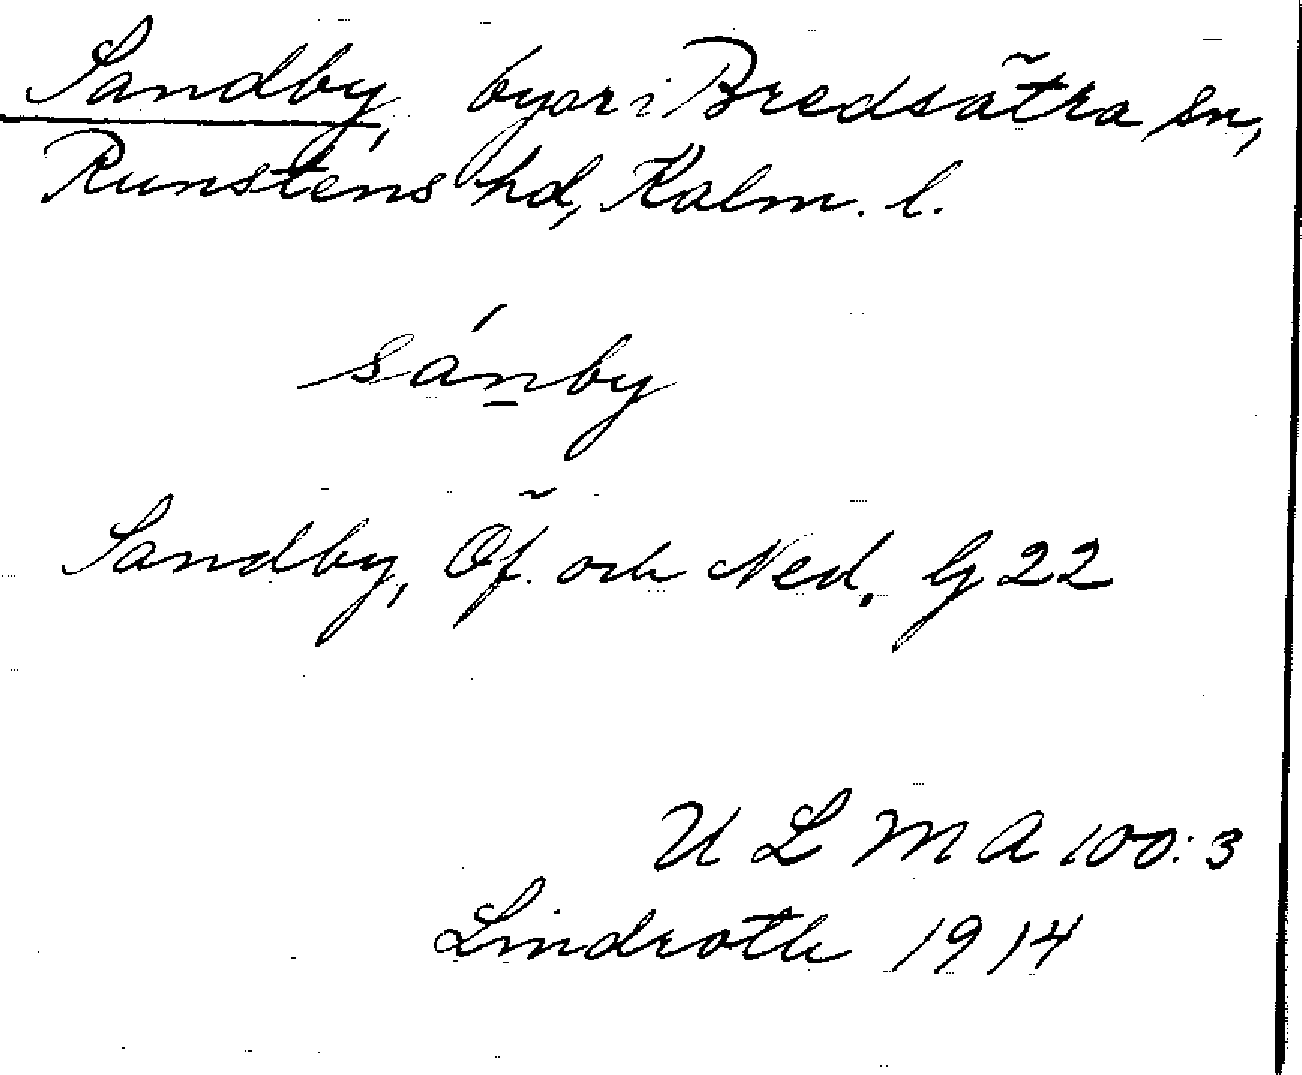 Sandby, byar i Bredsätra sn,
Runstens hd, Kalm. l.
sánby
Sandby, Öf. och Ned. G 22
ULMA 100:3
Lindroth 1914